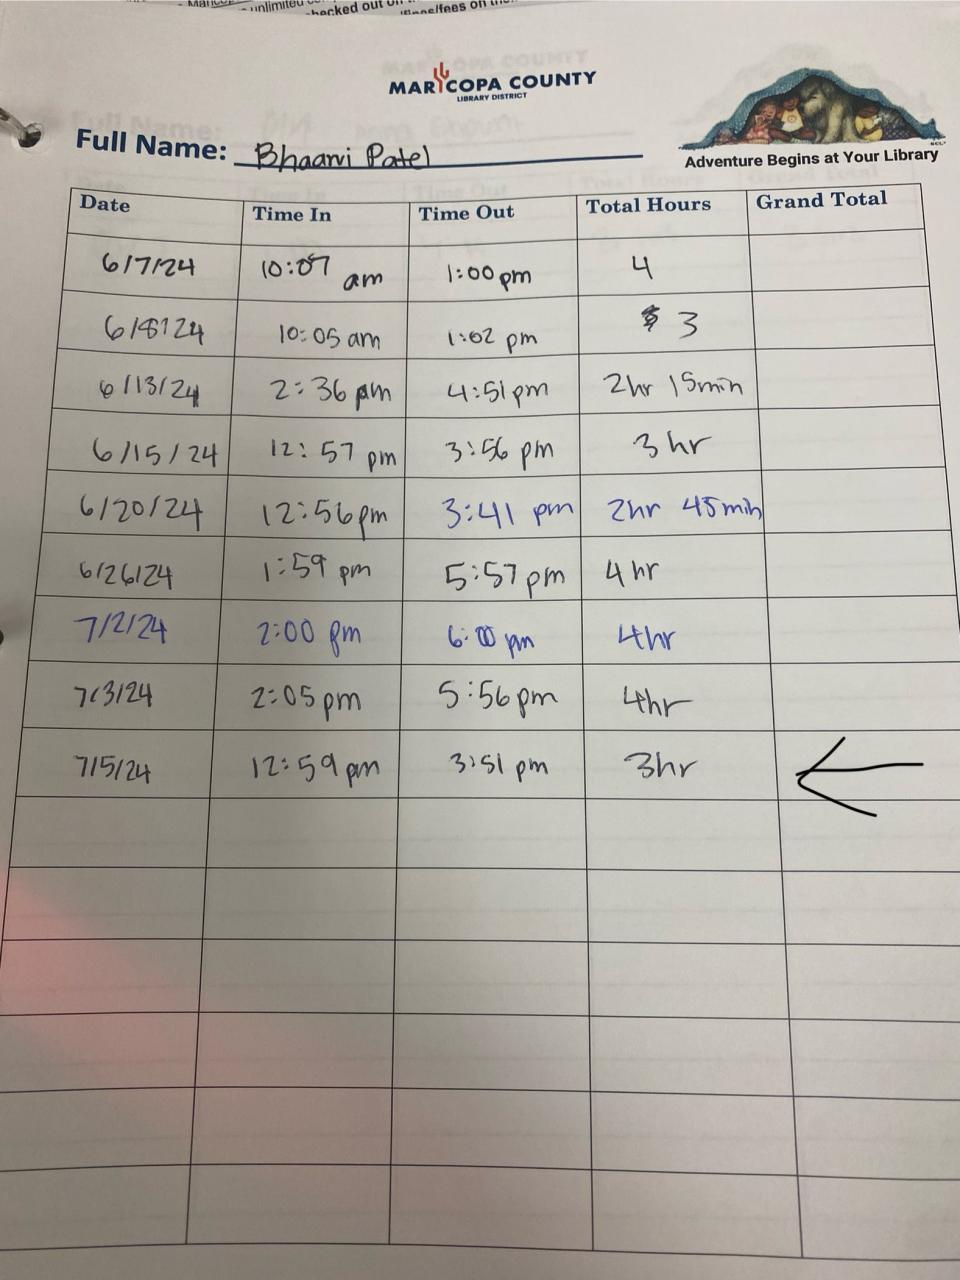 unlimited
checked out on
fines/fees on
MARICOPA COUNTY
LIBRARY DISTRICT
Full Name: Bhaanvi Patel
Adventure Begins at Your Library
Date Time In Time Out Total Hours Grand Total
6/7/24 10:07 am 1:00 pm 4
6/8/24 10:05 am 1:02 pm 3
6/13/24 2:36 pm 4:51 pm 2hr 15min
6/15/24 12:57 pm 3:56 pm 3 hr
6/20/24 12:56 pm 3:41 pm 2hr 45min
6/26/24 1:59 pm 5:57 pm 4 hr
7/2/24 2:00 pm 6:00 pm 4hr
7/3/24 2:05 pm 5:56 pm 4hr
7/5/24 12:59 pm 3:51 pm 3hr